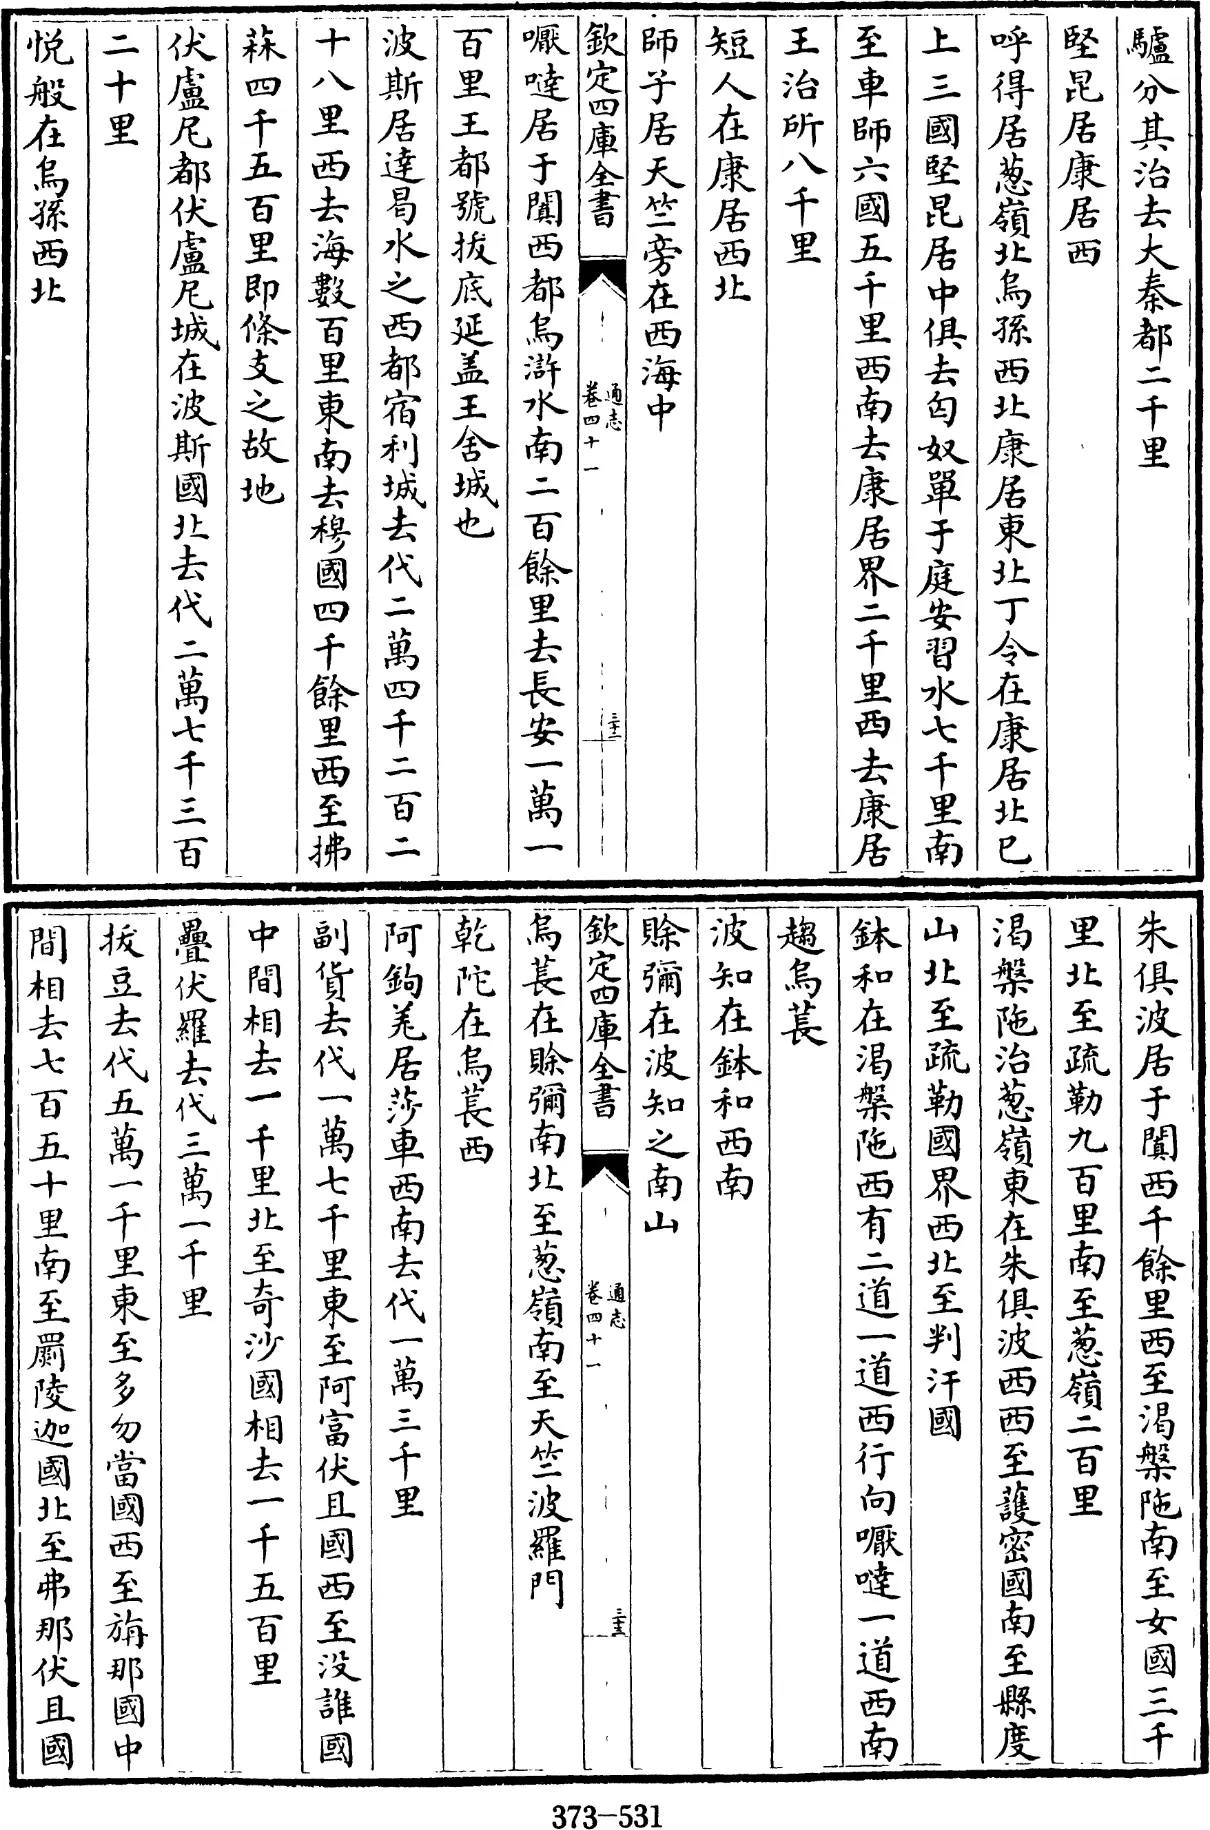 驢分其治去大秦都二千里
堅昆居康居西
呼得居葱嶺北烏孫西北康居東北丁令在康居北已
上三國堅昆居中俱去匈奴單于庭安習水七千里南
至車師六國五千里西南去康居界二千里西去康居
王治所八千里
短人在康居西北
師子居天竺旁在西海中
欽定四庫全書
通志
卷四十一
三十二
嚈噠居于闐西都烏滸水南二百餘里去長安一萬一
百里王都號拔底延盖王舍城也
波斯居達曷水之西都宿利城去代二萬四千二百二
十八里西去海數百里東南去穆國四千餘里西至拂
菻四千五百里即條支之故地
伏盧尼都伏盧尼城在波斯國北去代二萬七千三百
二十里
悦般在烏孫西北
朱俱波居于闐西千餘里西至渴槃陁南至女國三千
里北至疏勒九百里南至葱嶺二百里
渴槃陁治葱嶺東在朱俱波西西至護密國南至縣度
山北至疏勒國界西北至判汗國
鉢和在渴槃陁西有二道一道西行向嚈噠一道西南
趨烏萇
波知在鉢和西南
賖彌在波知之南山
欽定四庫全書
通志
卷四十一
三十三
烏萇在賖彌南北至葱嶺南至天竺波羅門
乾陀在烏萇西
阿鉤羌居莎車西南去代一萬三千里
副貨去代一萬七千里東至阿富伏且國西至没誰國
中間相去一千里北至奇沙國相去一千五百里
疊伏羅去代三萬一千里
拔豆去代五萬一千里東至多勿當國西至旃那國中
間相去七百五十里南至罽陵迦國北至弗那伏且國
373-531